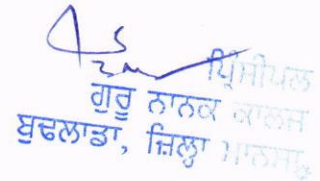 ਪ੍ਰਿੰਸੀਪਲ
ਗੁਰੂ ਨਾਨਕ ਕਾਲਜ
ਬੁਢਲਾਡਾ, ਜ਼ਿਲ੍ਹਾ ਮਾਨਸਾ